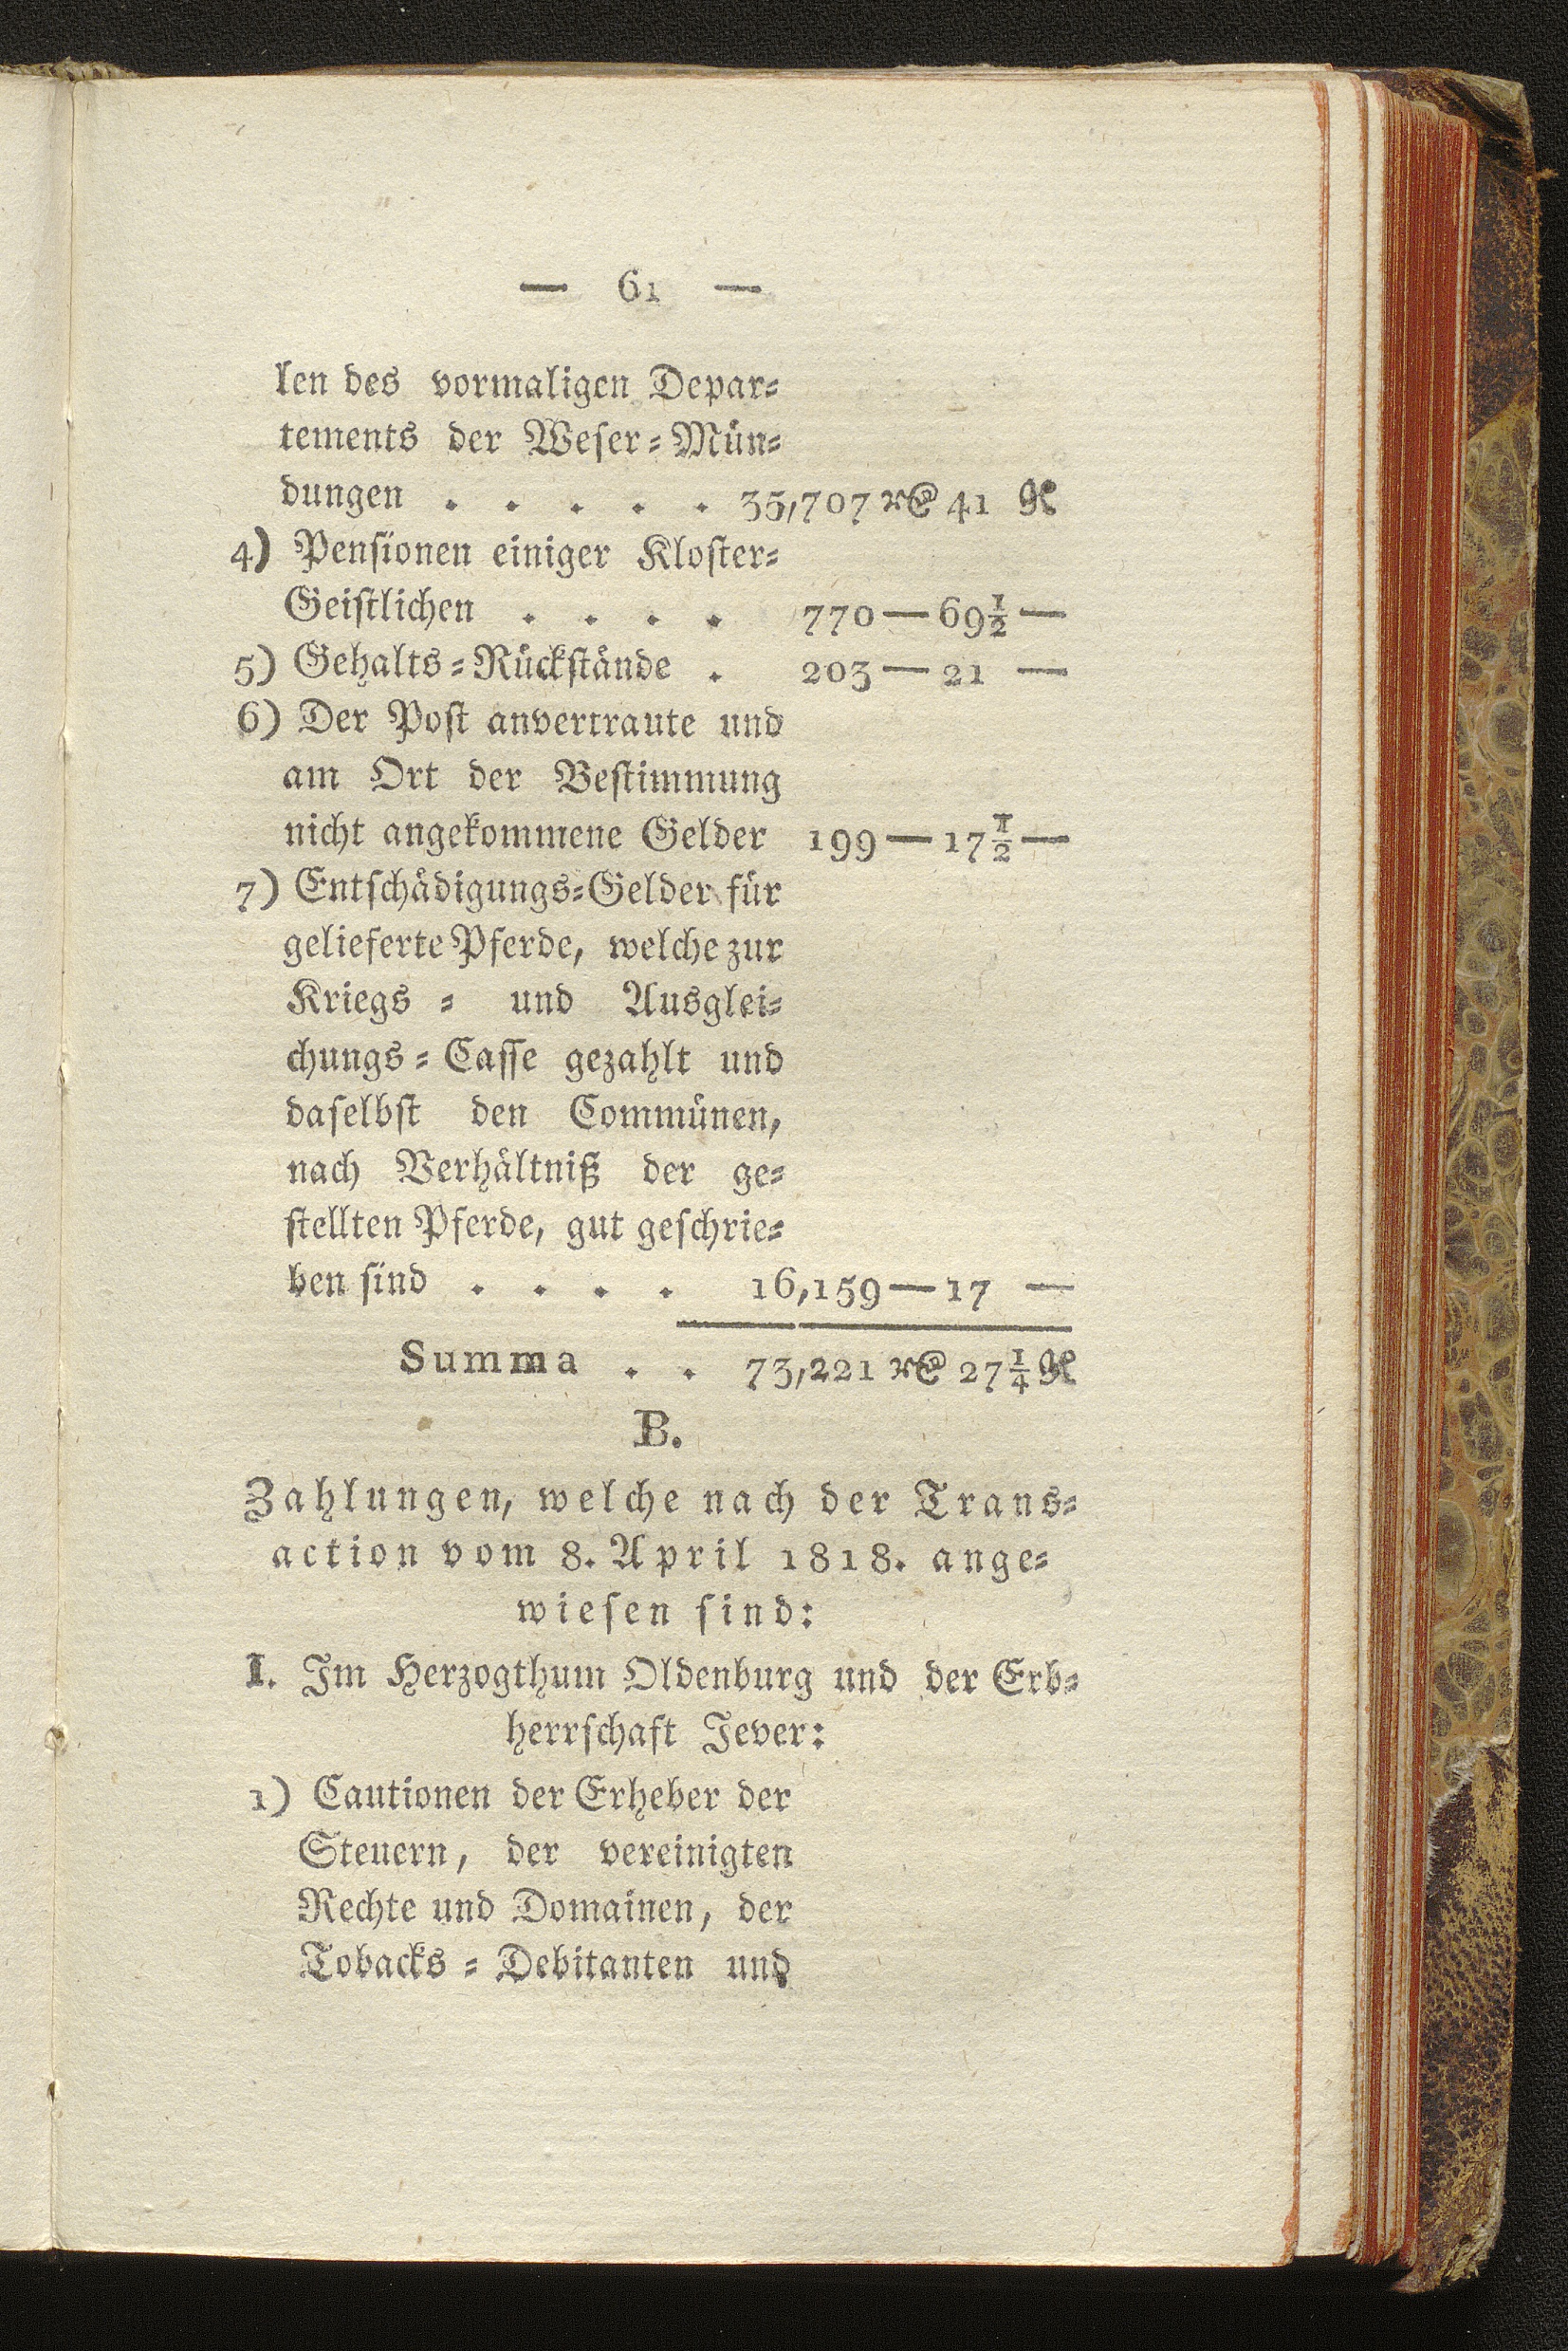 — 61 —
len des vormaligen Depar⸗
tements der Weſer⸗Mün⸗
dungen . . . . . 35,707 r@ 41 gR
4) Penſionen einiger Kloſter⸗
Geiſtlichen . . . . 770 — 69½ —
5) Gehalts⸗Rückſtände . 203 — 21 —
6) Der Poſt anvertraute und
am Ort der Beſtimmung
nicht angekommene Gelder 199 — 17½ —
7) Entſchädigungs⸗Gelder für
gelieferte Pferde, welche zur
Kriegs⸗ und Ausglei⸗
chungs⸗Caſſe gezahlt und
daſelbſt den Commünen,
nach Verhältniß der ge⸗
ſtellten Pferde, gut geſchrie⸗
ben ſind . . . . 16,159 — 17 —
Summa . . 73,221 r@ 27¼ gR
B.
Zahlungen, welche nach der Trans⸗
action vom 8. April 1818. ange⸗
wieſen ſind:
I. Im Herzogthum Oldenburg und der Erb⸗
herrſchaft Jever:
1) Cautionen der Erheber der
Steuern, der vereinigten
Rechte und Domainen, der
Tobacks⸗Debitanten und